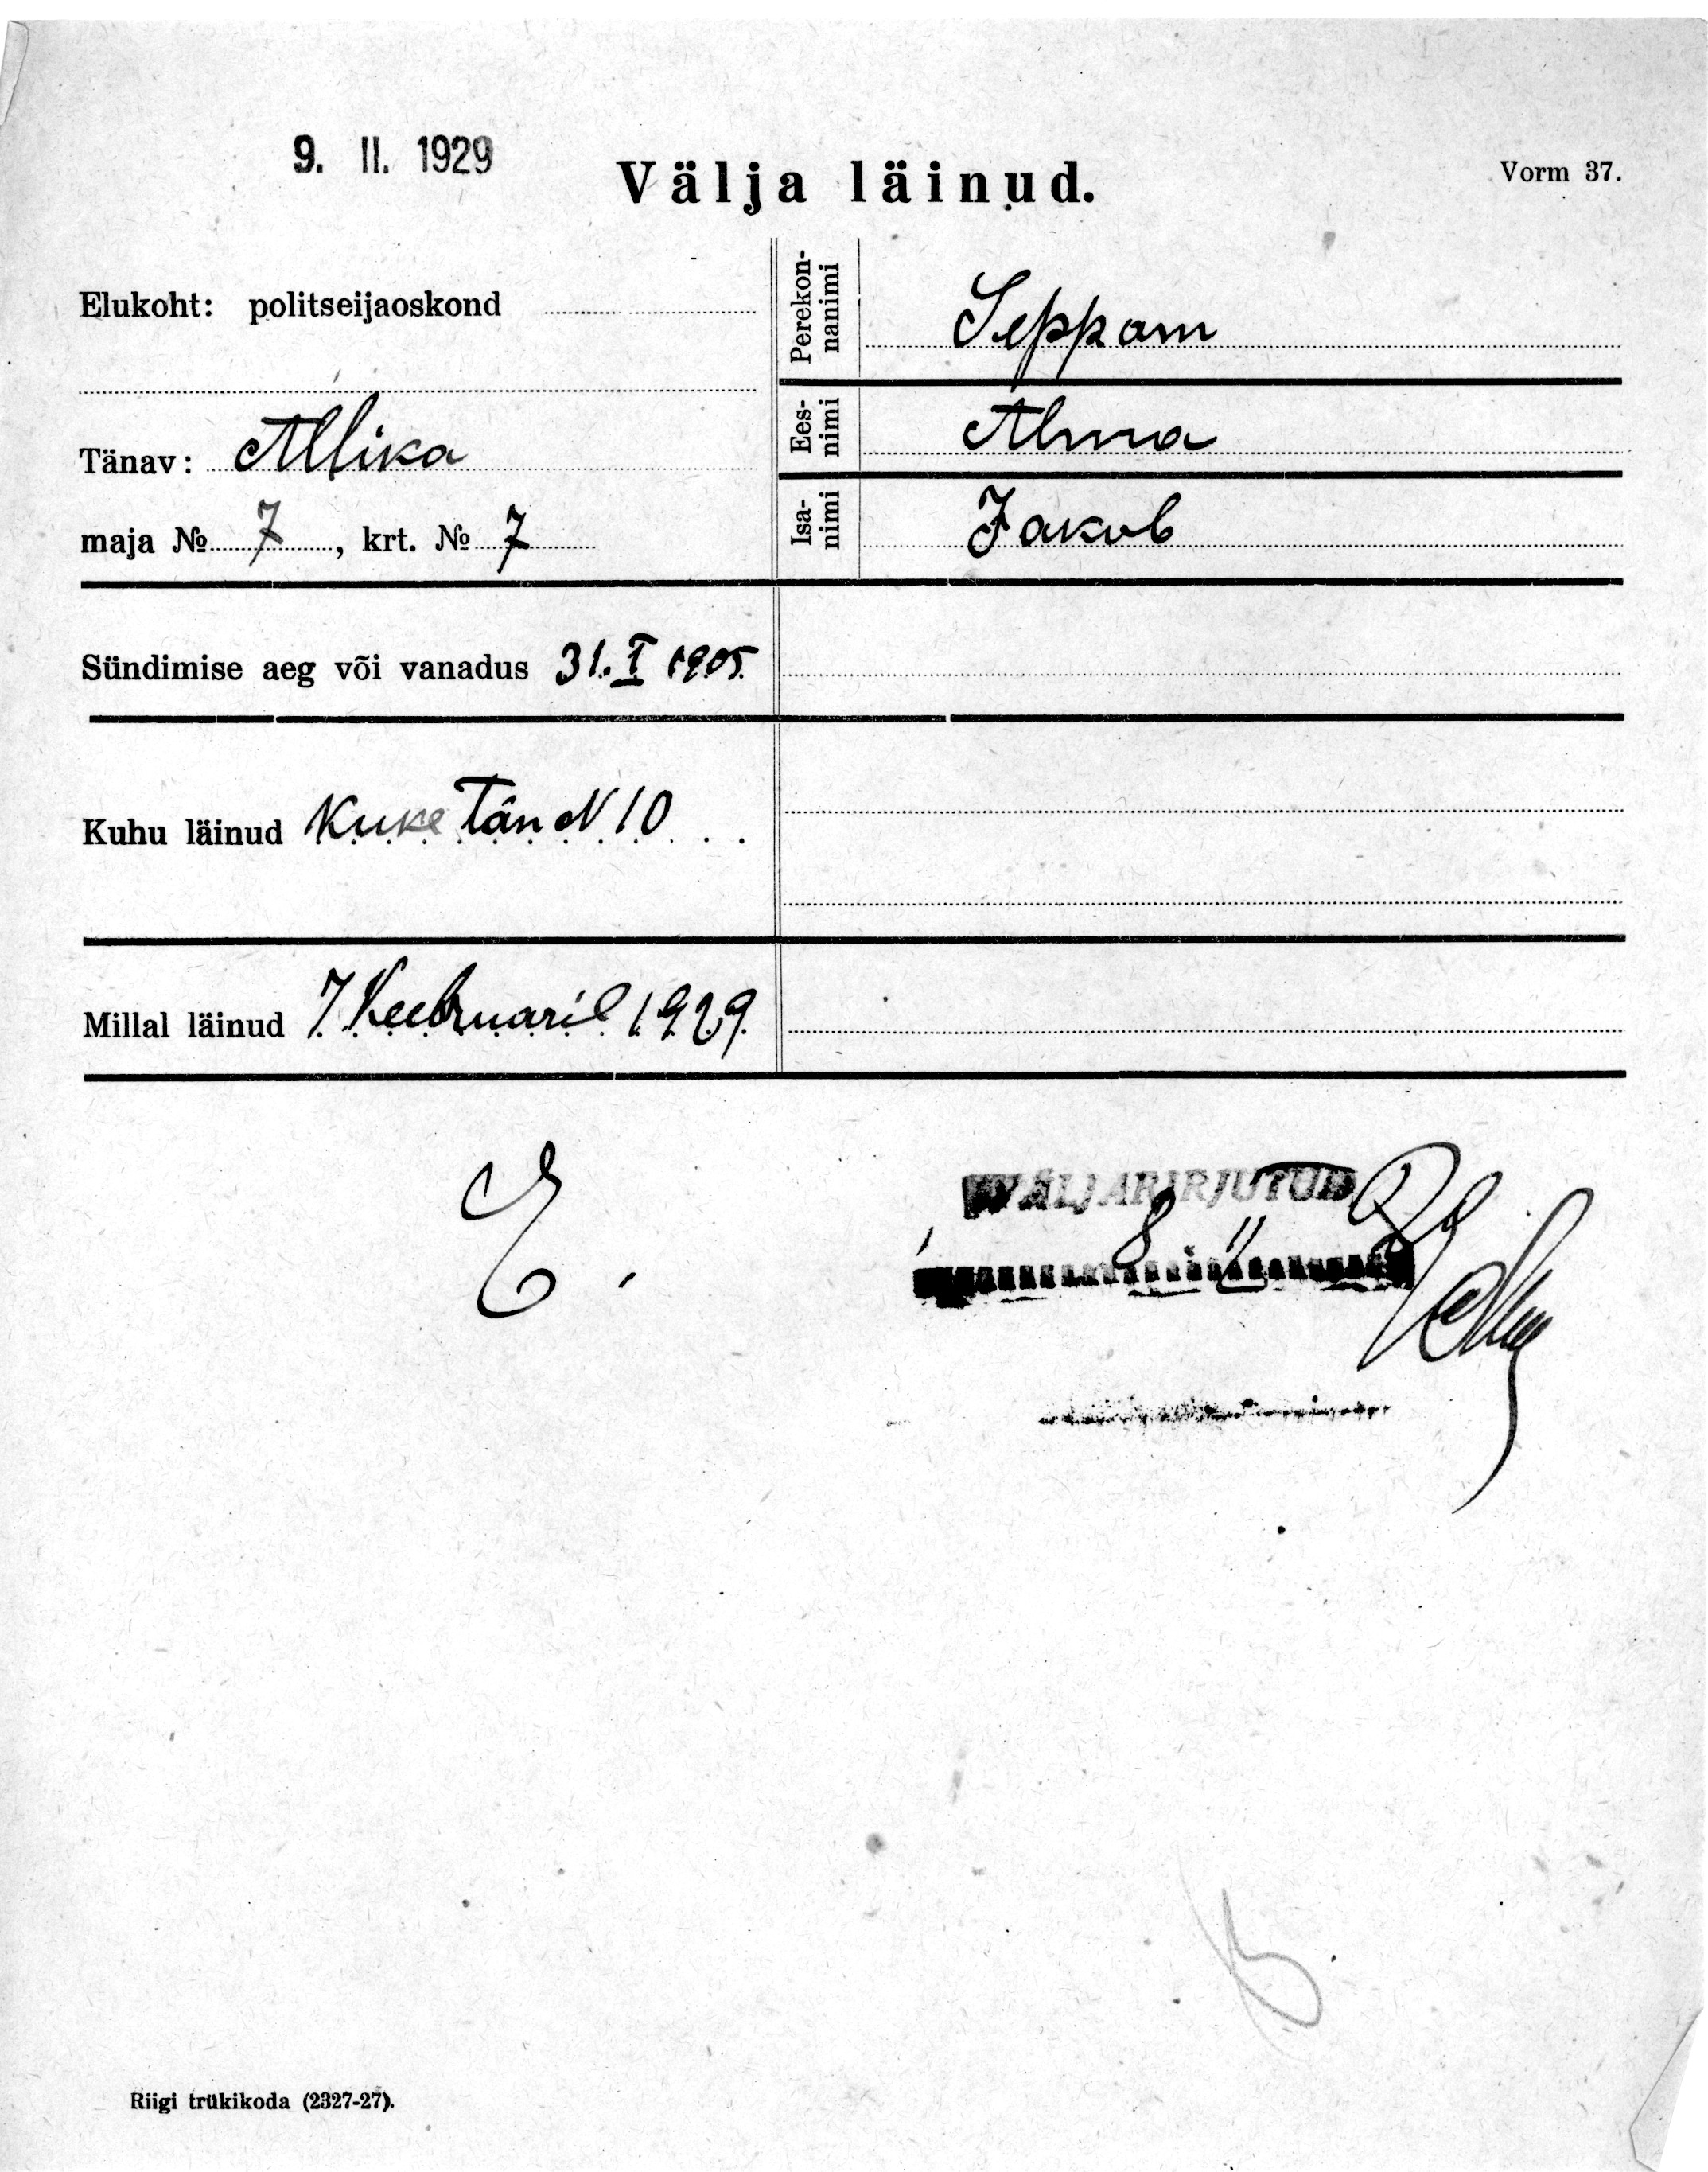 9. II. 1929
Välja läinud.
Vorm 37.
Elukoht: politseijaoskond
Tänav: Allika
maja № 7, krt. № 7
Perekon-
nanimi
Seppam
Ees-
nimi
Alma
Isa-
nimi
Jakob
Sündimise aeg või vanadus 31. I 1905
Kuhu läinud Kuke Tän N 10
Millal läinud 7 Veebruaril 1929
E.
VÄLJAKIRJUTUD
8 II
Riigi trükikoda (2327-27).